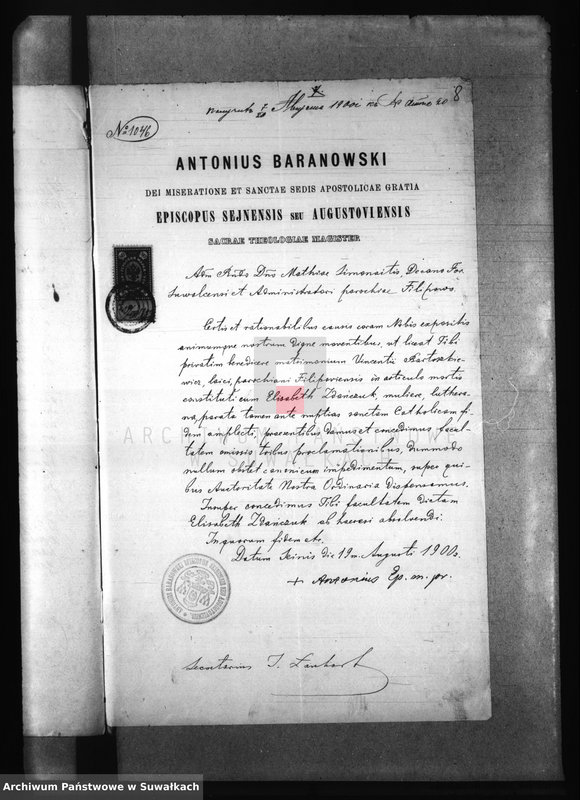 8
1900
№ 1046
ANTONIUS BARANOWSKI
DEI MISERATIONE ET SANCTAE SEDIS APOSTOLICAE GRATIA
EPISCOPUS SEJNENSIS SEU AUGUSTOVIENSIS
SACRAE THEOLOGIAE MAGISTER
Adm Rndo Dno Mathiae Simonaitis, Decano For.
Suwalcensi et Administratori parochiae Filipowo.
Certis et rationabilibus causis coram Nobis expositis
animumque nostrum digne moventibus, ut liceat Tibi
privatim benedicere matrimonium Vincentii Bartoszkie-
wicz, laici, parochiani Filipoviensis in articulo mortis
constituti cum Elisabeth Zdańczuk, muliere, luthera-
na, parata tamen ante nuptias sanctam Catholicam fi-
dem amplecti, praesentibus damus et concedimus facul-
tatem omissis tribus proclamationibus, dummodo
nullum obstet canonicum impedimentum, super qui-
bus Autoritate Nostra Ordinaria dispensamus.
Insuper concedimus Tibi facultatem dictam
Elisabeth Zdańczuk ab haeresi absolvendi.
In quorum fidem etc.
Datum Seinis die 19 m. Augusti 1900 a.
+ Antonius Ep. m. pr.
Secretarius
ARCHIWUM PAŃSTWOWE
SUWAŁKI
Archiwum Państwowe w Suwałkach